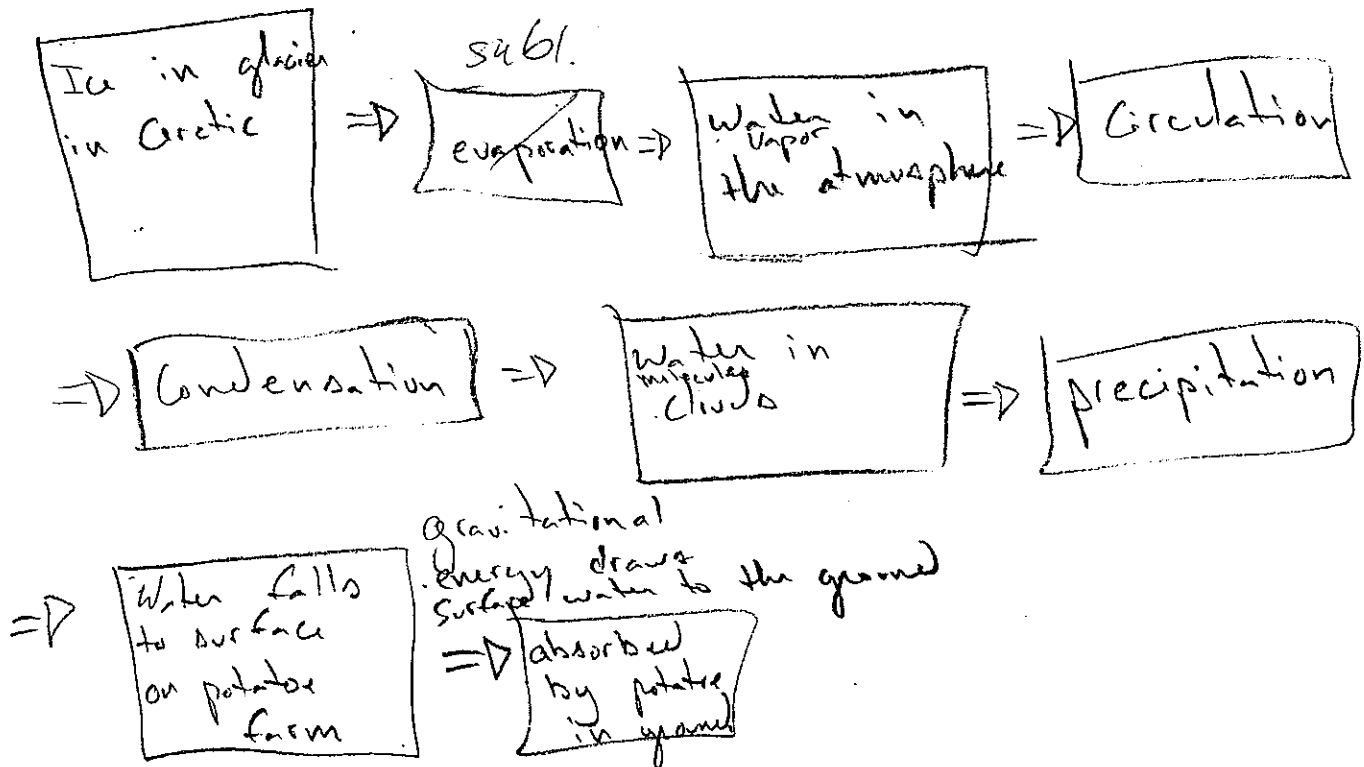 Ice in glacier
in Arctic
subl.
evaporation
Water in
vapor
the atmosphere
Circulation
Condensation
Water in
molecules
clouds
precipitation
Water falls
to surface
on potatoe
farm
gravitational
energy draws
surface water to the ground
absorbed
by potatoe
in ground